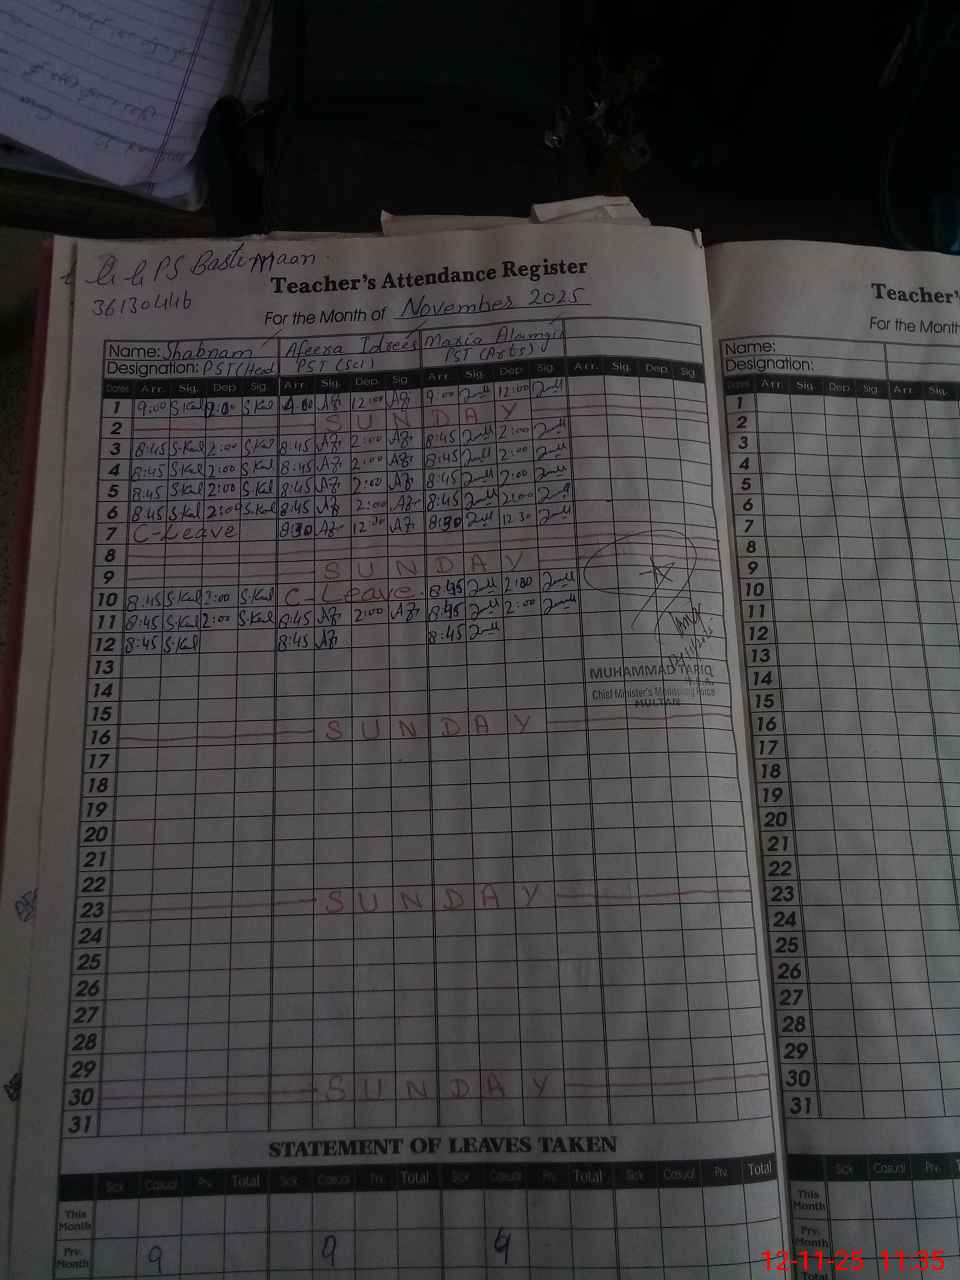 G G PS Basti Maan
36130446
Teacher's Attendance Register
For the Month of November 2025
Name: Shabnam Afeera Idrees Maria Alamgir
Designation: PST (Head PST (Sci) PST (Arts)
Dates Arr. Sig. Dep. Sig. Arr. Sig. Dep. Sig. Arr. Sig. Dep. Sig. Arr. Sig. Dep. Sig.
1 9:00 S.Kal 9:00 12:00 9:00 12:00
2 SUNDAY
3 8:45 S.Kal 2:00 S.Kal 8:45 2:00 8:45 2:00
4 8:45 S.Kal 2:00 S.Kal 8:45 2:00 8:45 2:00
5 8:45 S.Kal 2:00 S.Kal 8:45 2:00 8:45 2:00
6 8:45 S.Kal 2:00 S.Kal 8:45 2:00 8:45 2:00
7 C-Leave 8:30 12:30 8:30 12:30
8
9 SUNDAY
10 8:45 S.Kal 2:00 S.Kal C-Leave 8:45 2:00
11 8:45 S.Kal 2:00 S.Kal 8:45 2:00 8:45 2:00
12 8:45 S.Kal 8:45 8:45
13
14
MUHAMMAD TARIQ
Chief Minister's Monitoring Force
MULTAN
15
16 SUNDAY
17
18
19
20
21
22
23 SUNDAY
24
25
26
27
28
29
30 SUNDAY
31
STATEMENT OF LEAVES TAKEN
Sick Casual Prv. Total Sick Casual Prv. Total Sick Casual Prv. Total Sick Casual Prv. Total
This Month
Prv. Month 9 9 9
Teacher'
For the Month
Name:
Designation:
Dates Arr. Sig. Dep. Sig. Arr. Sig.
1
2
3
4
5
6
7
8
9
10
11
12
13
14
15
16
17
18
19
20
21
22
23
24
25
26
27
28
29
30
31
Sick Casual Prv. Total Sick Casual Prv.
This Month
Prv. Month
Total
12-11-25 11:35